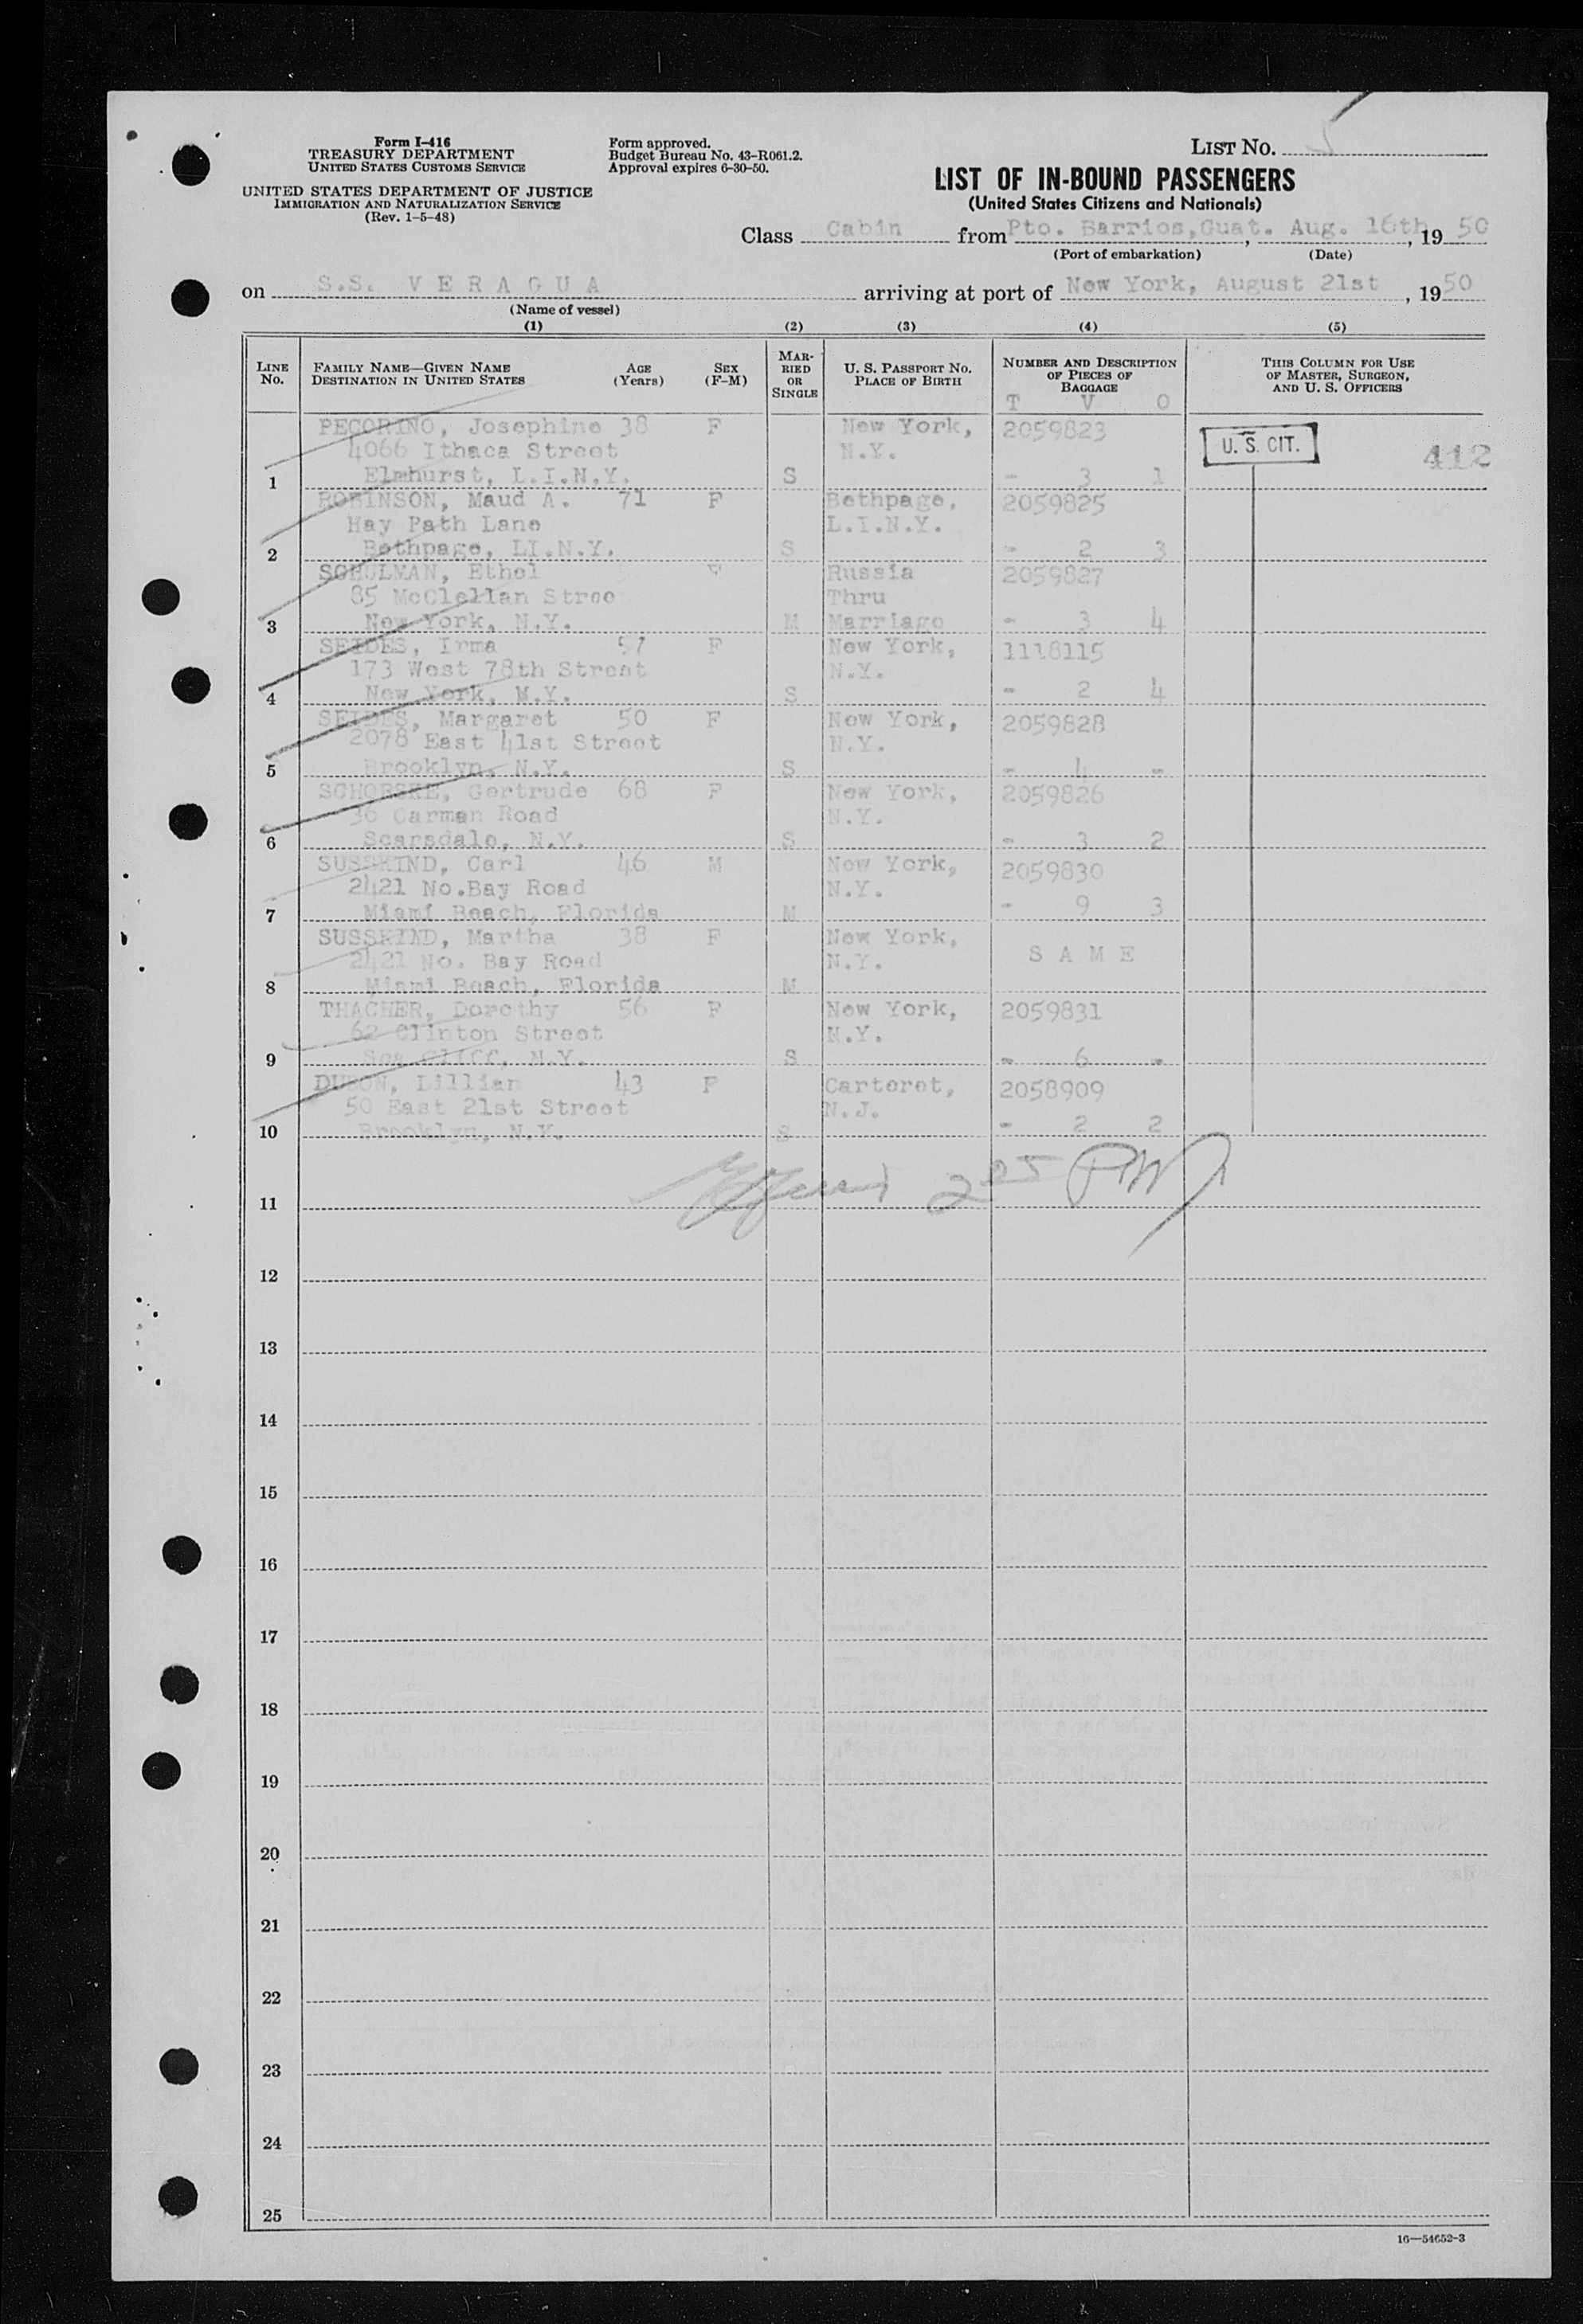 Form I-416
TREASURY DEPARTMENT
UNITED STATES CUSTOMS SERVICE
UNITED STATES DEPARTMENT OF JUSTICE
IMMIGRATION AND NATURALIZATION SERVICE
(Rev. 1-5-48)
Form approved.
Budget Bureau No. 43-R061.2.
Approval expires 6-30-50.
LIST No. 5
LIST OF IN-BOUND PASSENGERS
(United States Citizens and Nationals)
Class Cabin from Pto. Barrios, Guat. , Aug. 16th , 19 50
(Port of embarkation) (Date)
on S.S. V E R A G U A arriving at port of New York, August 21st , 19 50
(Name of vessel)
(1) (2) (3) (4) (5)
LINE No. FAMILY NAME—GIVEN NAME DESTINATION IN UNITED STATES AGE (Years) SEX (F-M) MARRIED OR SINGLE U. S. PASSPORT No. PLACE OF BIRTH NUMBER AND DESCRIPTION OF PIECES OF BAGGAGE THIS COLUMN FOR USE OF MASTER, SURGEON, AND U. S. OFFICERS
T V O
PECORINO, Josephine 38 F New York, 2059823
4066 Ithaca Street N.Y. U. S. CIT. 412
1 Elmhurst, L.I.N.Y. S - 3 1
ROBINSON, Maud A. 71 F Bethpage, 2059825
Hay Path Lane L.I.N.Y.
2 Bethpage, LI.N.Y. S - 2 3
SCHULMAN, Ethel F Russia 2059827
85 McClellan Stree Thru
3 New York, N.Y. M Marriage - 3 4
SEIDES, Irma 57 F New York, 1118115
173 West 78th Street N.Y.
4 New York, N.Y. S - 2 4
SEIDES, Margaret 50 F New York, 2059828
2078 East 41st Street N.Y.
5 Brooklyn, N.Y. S - 4 -
Gertrude 68 F New York, 2059826
36 Carman Road N.Y.
6 Scarsdale, N.Y. S - 3 2
SUSSKIND, Carl 46 M New York, 2059830
2421 No.Bay Road N.Y.
7 Miami Beach, Florida M - 9 3
SUSSKIND, Martha 38 F New York, S A M E
2421 No. Bay Road N.Y.
8 Miami Beach, Florida M
THACHER, Dorothy 56 F New York, 2059831
62 Clinton Street N.Y.
9 Sea Cliff, N.Y. S - 6 -
Lillian 43 F Carteret, 2058909
50 East 21st Street N.J.
10 Brooklyn, N.Y. S - 2 2
11 2 25 PM
12
13
14
15
16
17
18
19
20
21
22
23
24
25
16—54652-3